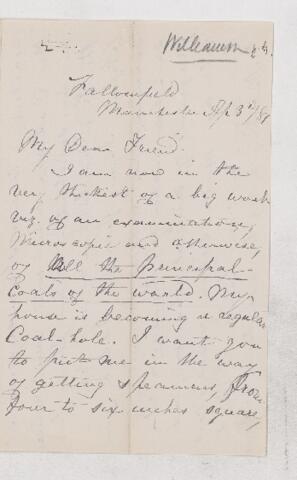 Williamson
Fallowfield
Manchester Ap 3rd/81
My Dear Friend
I am now in the
very thickest of a big work
viz. of an examination,
Microscopic and otherwise,
of all the principal
Coals of the world. My
house is becoming a regular
Coal-hole. I want you
to put me in the way
of getting specimens, from
four to six inches square,